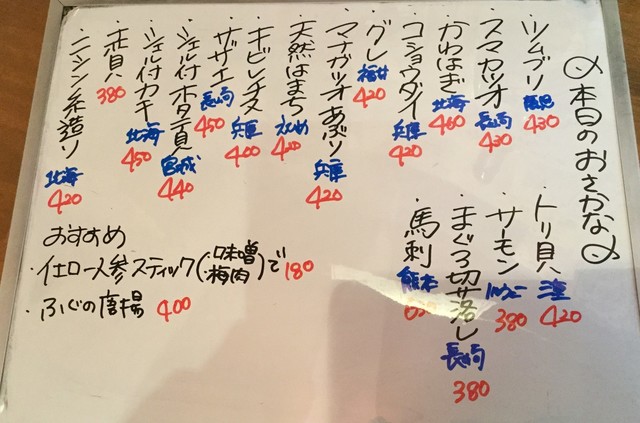 本日のおさかな
・ツムブリ 鹿児 430
・スマカツオ 長崎 430
・かわはぎ 北海 460
・コショウダイ 兵庫 420
・グレ 福井 420
・マナガツオあぶり 兵庫 420
・天然はまち 愛媛 400
・キビレチヌ 兵庫 400
・サザエ 長崎 450
・シェル付ホタテ貝 宮城 440
・シェル付カキ 北海 450
・赤貝 380
・ニシン糸造り 北海 420
・トリ貝 420
・サーモン ノルウェー 380
・まぐろ切り落し 長崎 380
・馬刺 熊本
おすすめ
・イエロー人参スティック(・味噌・梅肉)で 180
・ふぐの唐揚 400